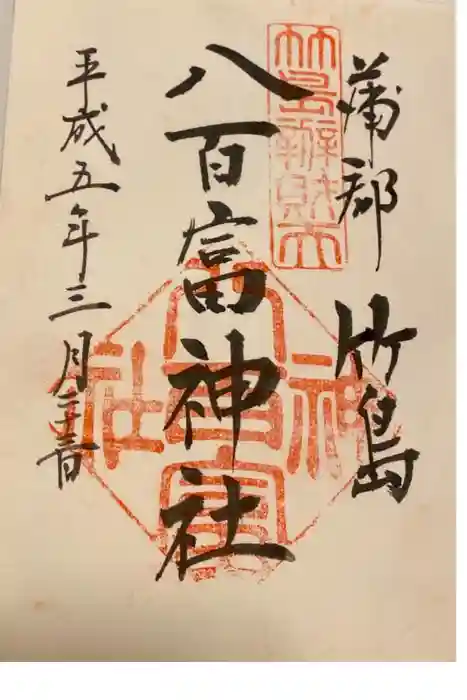 蒲郡 竹島
竹島辨財天
八百富神社
八百富神社
平成五年三月二十三日